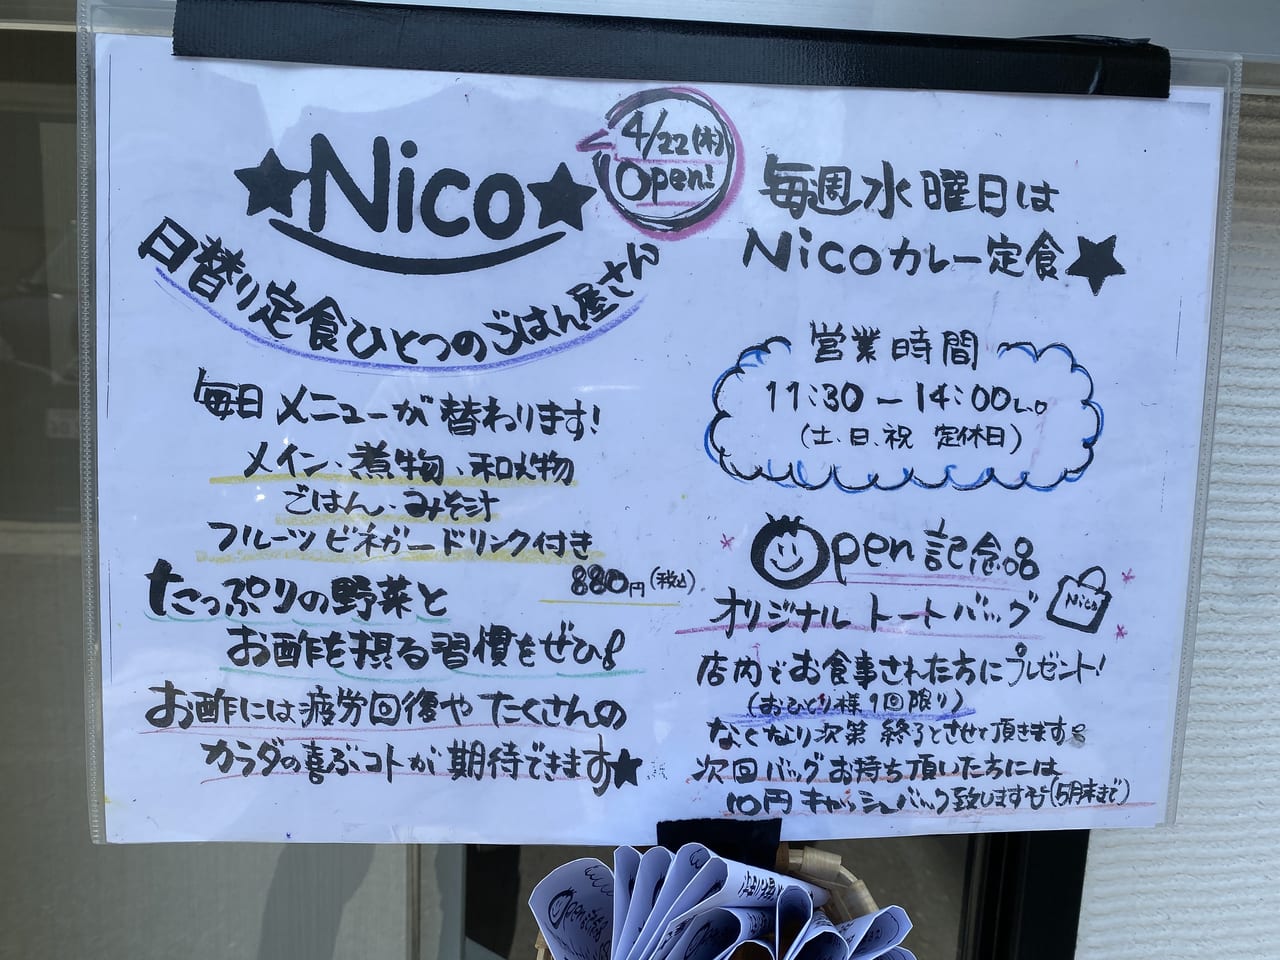 ★Nico★
4/22(木)
Open!
日替り定食ひとつのごはん屋さん
毎日メニューが替わります!
メイン、煮物、和え物
ごはん、みそ汁
フルーツビネガードリンク付き
880円(税込)
たっぷりの野菜と
お酢を摂る習慣をぜひ!
お酢には疲労回復や たくさんの
カラダの喜ぶコトが期待できます★
毎週水曜日は
Nicoカレー定食★
営業時間
11:30-14:00L.O
(土、日、祝 定休日)
Open記念品
オリジナルトートバッグ
Nico
店内でお食事された方にプレゼント!
(おひとり様1回限り)
なくなり次第 終了とさせて頂きます。
次回バッグお持ち頂いた方には
10円キャッシュバック致します(5月末まで)
Open